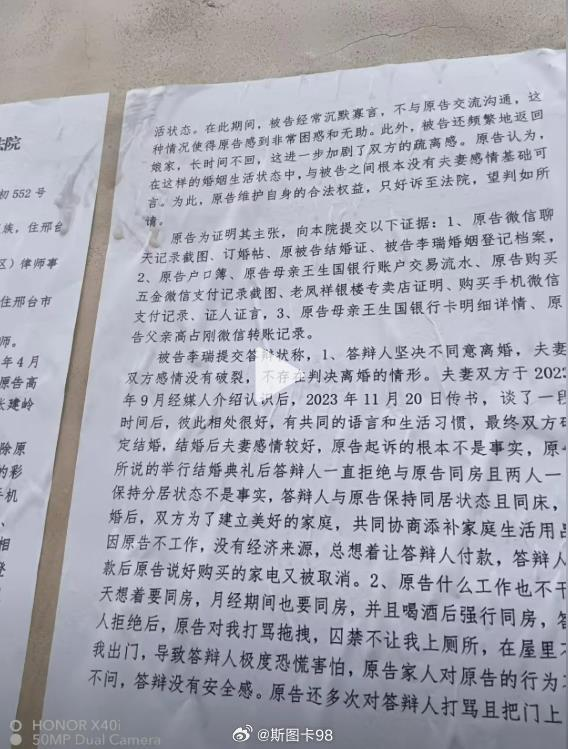 法院
初 552 号
族，住邢台
区）律师事
住邢台市
师。
年 4 月
原告高
张建岭
除原
的彩
手机
、
相
登
活状态。在此期间，被告经常沉默寡言，不与原告交流沟通，这
种情况使得原告感到非常困惑和无助。此外，被告还频繁地返回
娘家，长时间不回，这进一步加剧了双方的疏离感。原告认为，
在这样的婚姻生活状态中，与被告之间根本没有夫妻感情基础可
言。为此，原告维护自身的合法权益，只好诉至法院，望判如所
请。
原告为证明其主张，向本院提交以下证据：1、原告微信聊
天记录截图、订婚帖、原被告结婚证、被告李瑞婚姻登记档案，
2、原告户口簿、原告母亲王生国银行账户交易流水、原告购买
五金微信支付记录截图、老凤祥银楼专卖店证明、购买手机微信
支付记录、证人证言，3、原告母亲王生国银行卡明细详情、原
告父亲高占刚微信转账记录。
被告李瑞提交答辩状称，1、答辩人坚决不同意离婚，夫妻
双方感情没有破裂，不存在判决离婚的情形。夫妻双方于 2023
年 9 月经媒人介绍认识后，2023 年 11 月 20 日传书，谈了一段
时间后，彼此相处很好，有共同的语言和生活习惯，最终双方
定结婚，结婚后夫妻感情较好，原告起诉的根本不是事实，原
所说的举行结婚典礼后答辩人一直拒绝与原告同房且两人一
保持分居状态不是事实，答辩人与原告保持同居状态且同床，
婚后，双方为了建立美好的家庭，共同协商添补家庭生活用品
因原告不工作，没有经济来源，总想着让答辩人付款，答辩人
款后原告说好购买的家电又被取消。2、原告什么工作也不干
天想着要同房，月经期间也要同房，并且喝酒后强行同房，答
人拒绝后，原告对我打骂拖拽，囚禁不让我上厕所，在屋里不
我出门，导致答辩人极度恐慌害怕，原告家人对原告的行为不
不问，答辩没有安全感。原告还多次对答辩人打骂且把门上
HONOR X40i
50MP Dual Camera
@斯图卡98